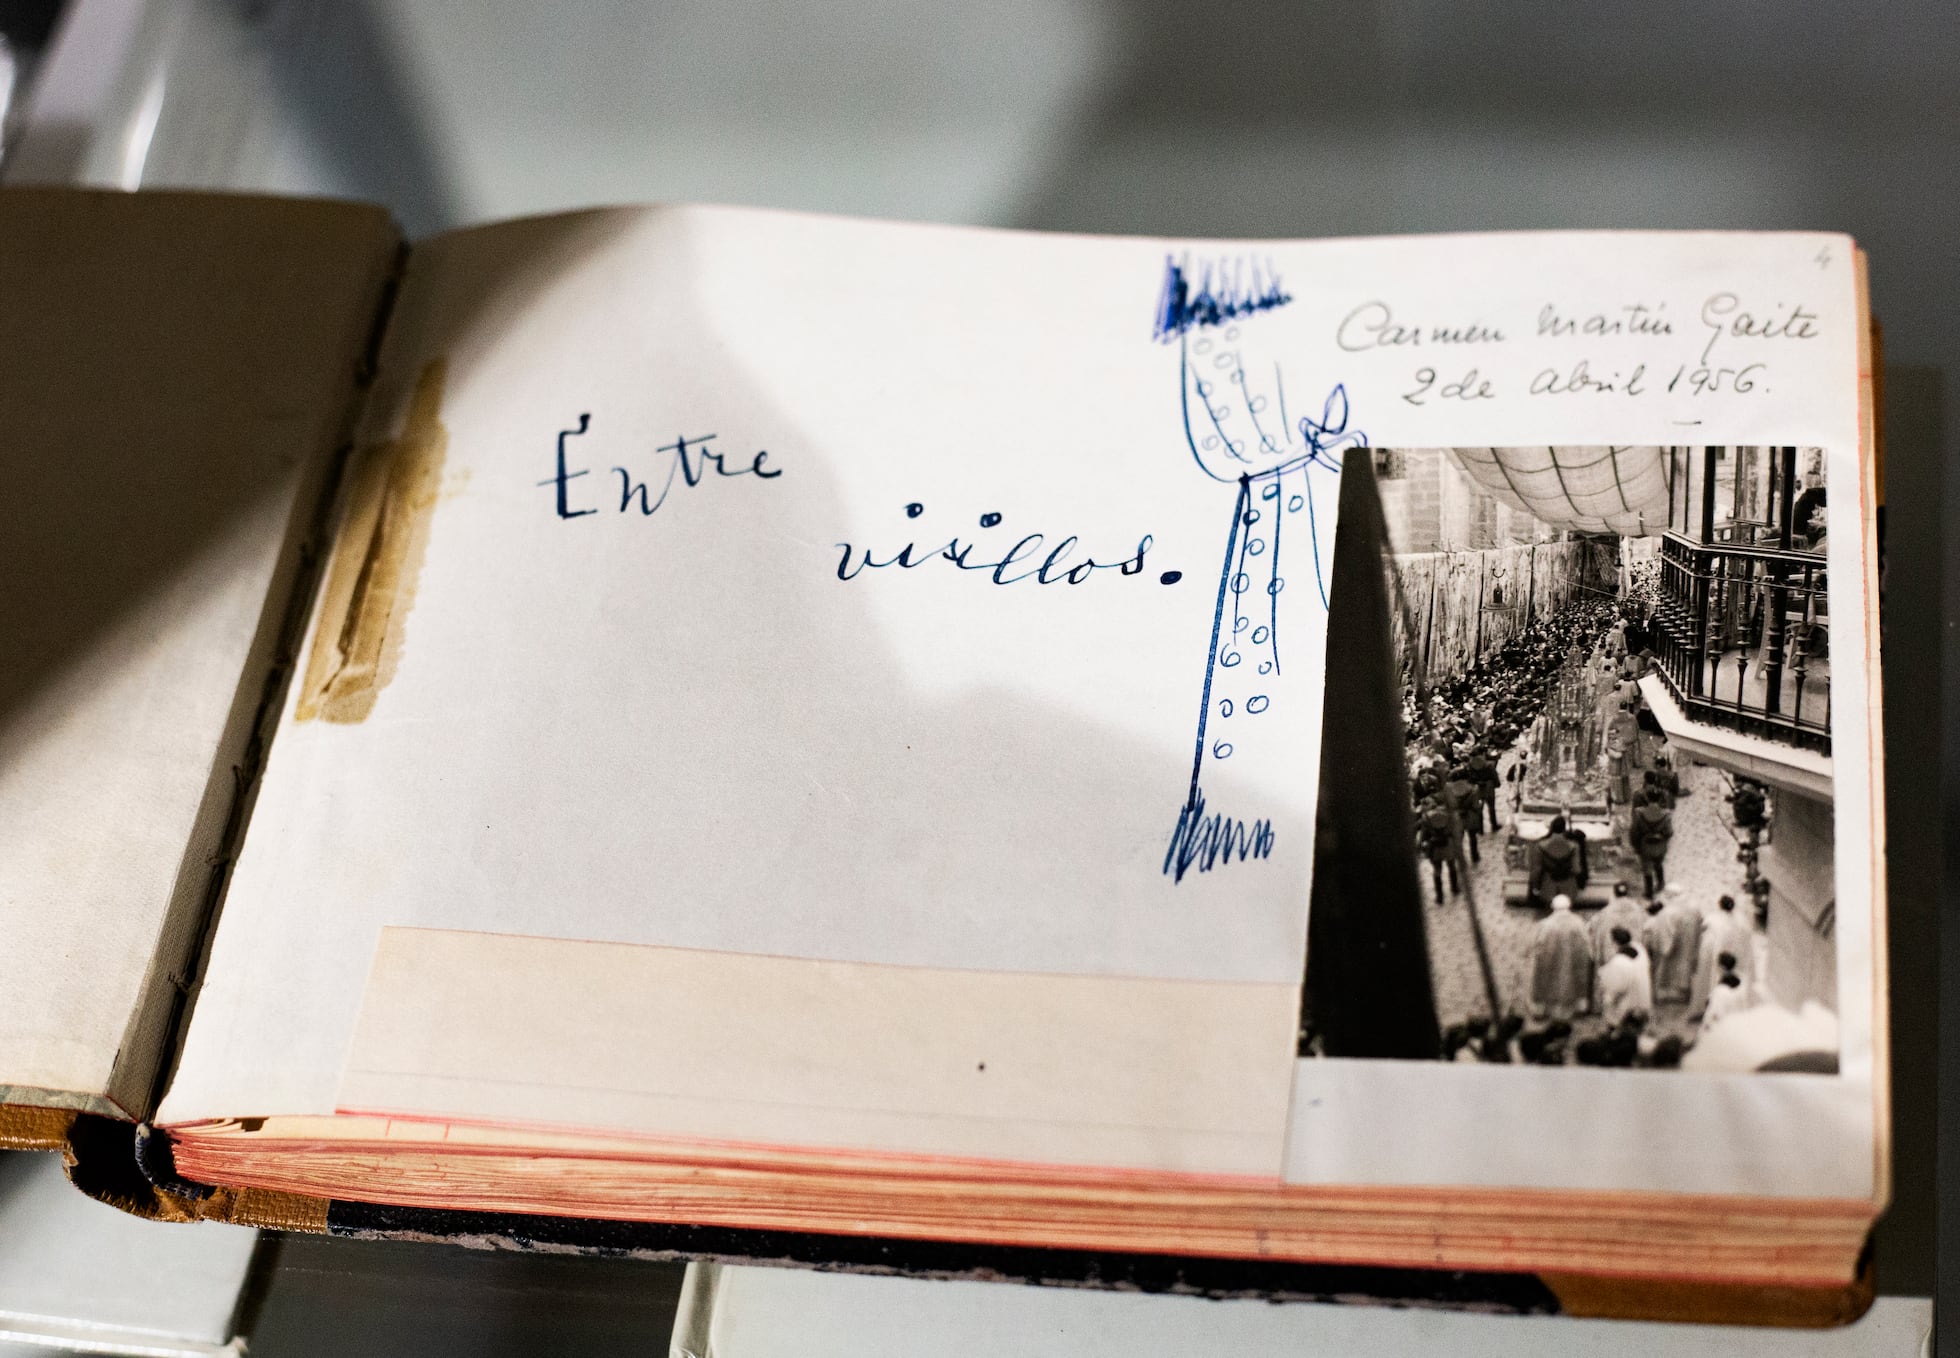 4
Carmen Martín Gaite
2 de Abril 1956.
Entre
visillos.